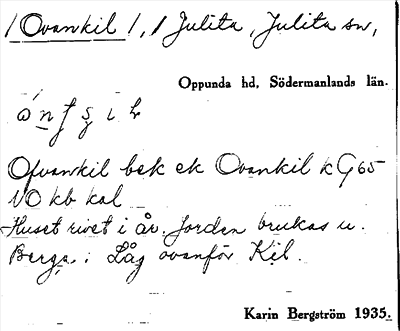 / Ovankil /, / Julita, Julita sn,
Oppunda hd, Södermanlands län.
Ofvankil bek ek Ovankil k G 65
NO kb kal
Huset rivet i år. Jordan brukas u.
Berga. Låg ovanför Kil.
Karin Bergström 1935.